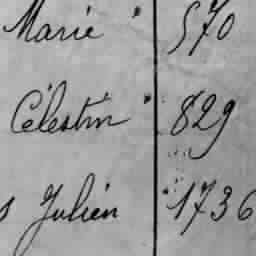 Marie " 570
Célestin " 829
s Julien " 1736